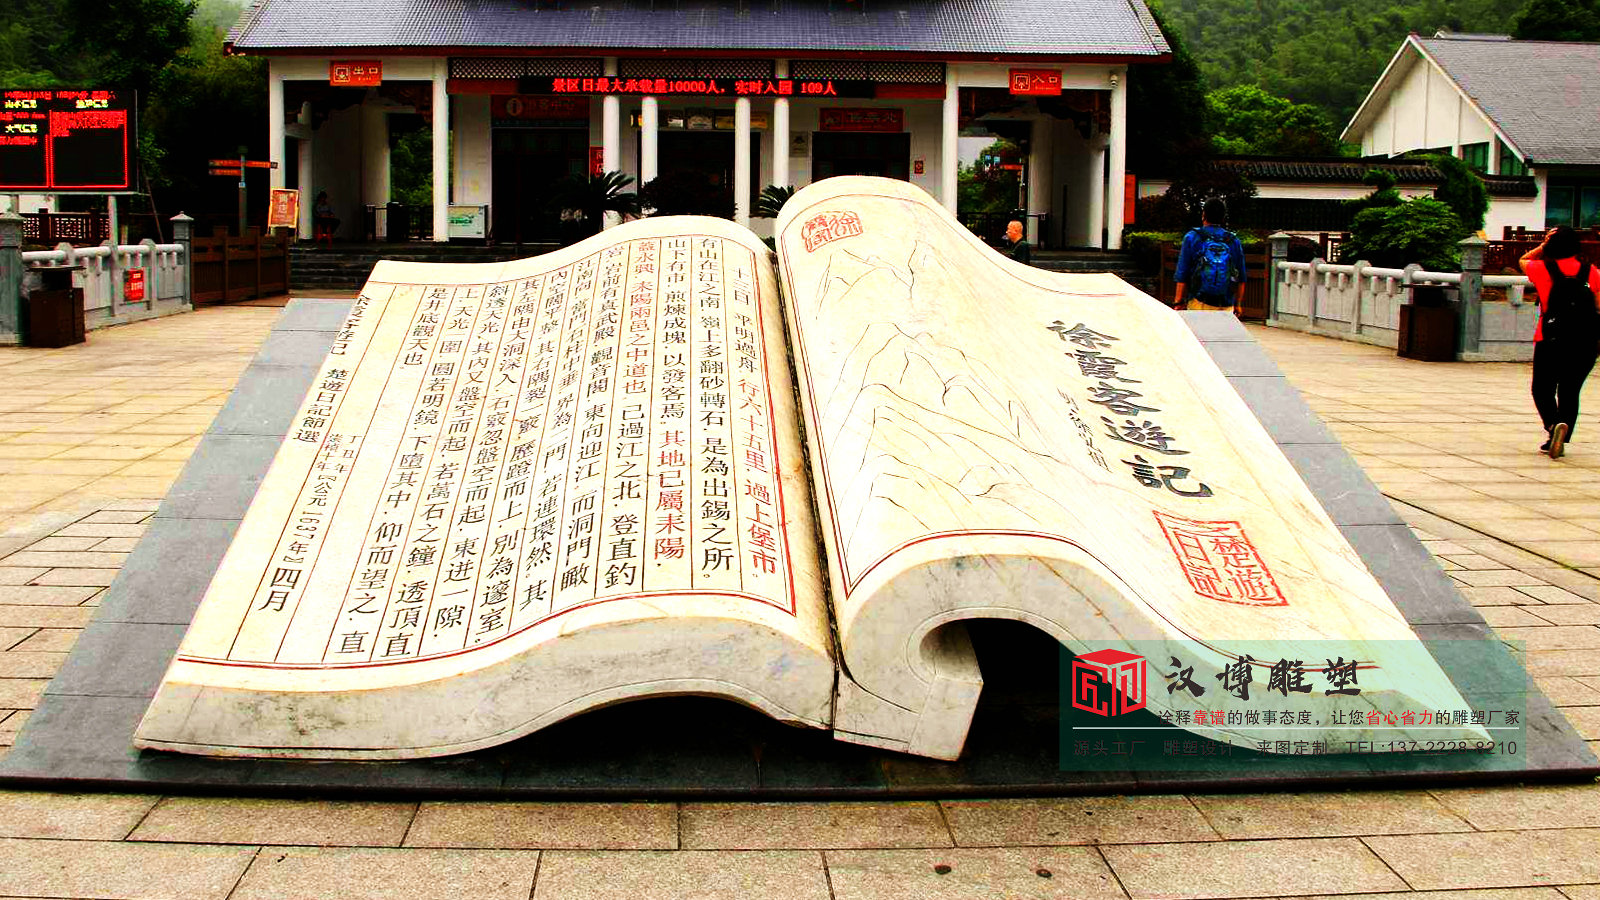 出口
景区日最大承载量10000人，实时入园 109人
入口
十三日 平明過舟 行六十五里 過上堡市。
有山在江之南 嶺上多翻砂轉石 是為出錫之所。
山下有市 煎煉成塊 以發客焉 其地已屬耒陽
蓋永興 耒陽兩邑之中道也 已過江之北 登直釣
岩 岩前有真武殿 觀音閣 東向迎江 而洞門瞰
江南向 當門石柱中垂 界為二門 若連環然 其
內空闊平整 其右隅裂一竅 歷蹬而上 別為邃室
其左隅由大洞深入 石竅忽盤空而起 東迸一隙
斜透天光 其內又盤空而起 若萬石之鐘 透頂直
上 天光一圍 圓若明鏡 下墮其中 仰而望之 直
是井底觀天也
丁丑年
崇禎十年『公元1637年』四月
徐霞客遊記 楚遊日記節選
徐霞客遊記
楚遊
日記
汉博雕塑
诠释靠谱的做事态度，让您省心省力的雕塑厂家
源头工厂 雕塑设计 来图定制 TEL:137-2228-8210